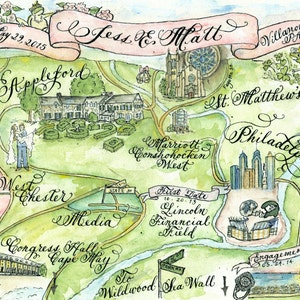 29, 2015
Jess & Matt
Villanova
Appleford
St. Matthew's
Marriott
Conshohocken
West
Philadel
West
Chester
Media
First Date
10.20.13
Lincoln
Financial
Field
Congress Hall
Cape May
To
Wildwood
Sea Wall
Engagement